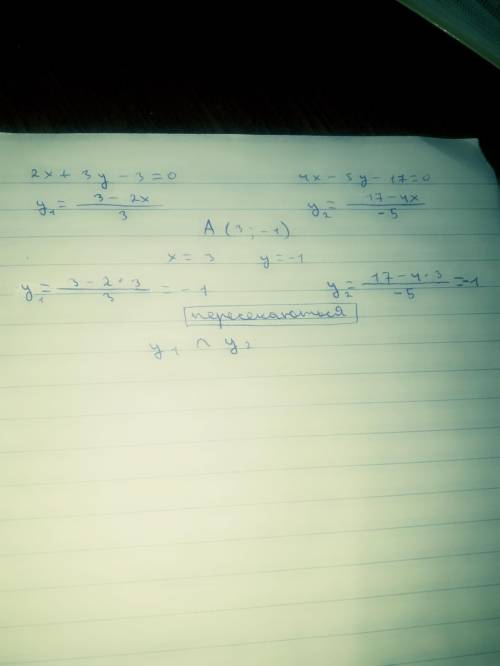 2x + 3y - 3 = 0 4x - 5y - 17 = 0
y₁ = (3 - 2x)/3 y₂ = (17 - 4x)/-5
A (3 ; -1)
x = 3 y = -1
y₁ = (3 - 2 · 3)/3 = -1 y₂ = (17 - 4 · 3)/-5 = -1
пересекаються
y₁ ∩ y₂